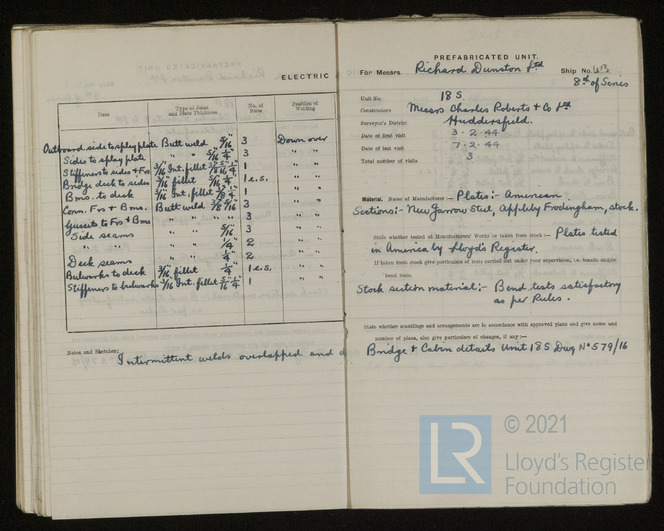 ELECTRIC
Item Type of Joint and Plate Thickness No. of Runs Position of Welding
Outboard side to splay plate Butt weld 5/16 3 Down over
Sides to splay plate " " 5/16 1/4 3 " "
Stiffeners to sides & Frs 3/16 Int. fillet 1 " "
Bridge deck to sides 3/16 fillet 5/16 1/4 1 e.s. " "
Bms. to deck 3/16 Int. fillet 1 " "
Conn. Frs & Bms. Butt weld 3/8 5/16 3 " "
Gussets to Frs & Bms " " " " 3 " "
Side seams " " 5/16 3 " "
" " " " 1/4 2 " "
Deck seams " " 1/4 2 " "
Bulwarks to deck 3/16 fillet 1/4 1 e.s. " "
Stiffeners to bulwarks 3/16 Int. fillet 5/16 1/4 1 " "
Notes and Sketches: Intermittent welds overlapped and
PREFABRICATED UNIT.
For Messrs. Richard Dunston Ltd Ship No.
8th of Series
Unit No. 18 S.
Constructors Messrs Charles Roberts & Co Ltd
Surveyor's District Huddersfield.
Date of first visit 3.2.44
Date of last visit 7.2.44
Total number of visits 3
Material. Name of Manufacturer :— Plates:- American
Sections:- New Jarrow Steel, Appleby Frodingham, stock.
State whether tested at Manufacturers' Works or taken from stock :— Plates tested
in America by Lloyd's Register.
If taken from stock give particulars of tests carried out under your supervision, i.e. tensile and/or
bend tests.
Stock section material:- Bend tests satisfactory
as per Rules.
State whether scantlings and arrangements are in accordance with approved plans and give name and
number of plans, also give particulars of changes, if any :—
Bridge & Cabin details Unit 18 S Dwg No 579/16
LR
© 2021
Lloyd's Register
Foundation